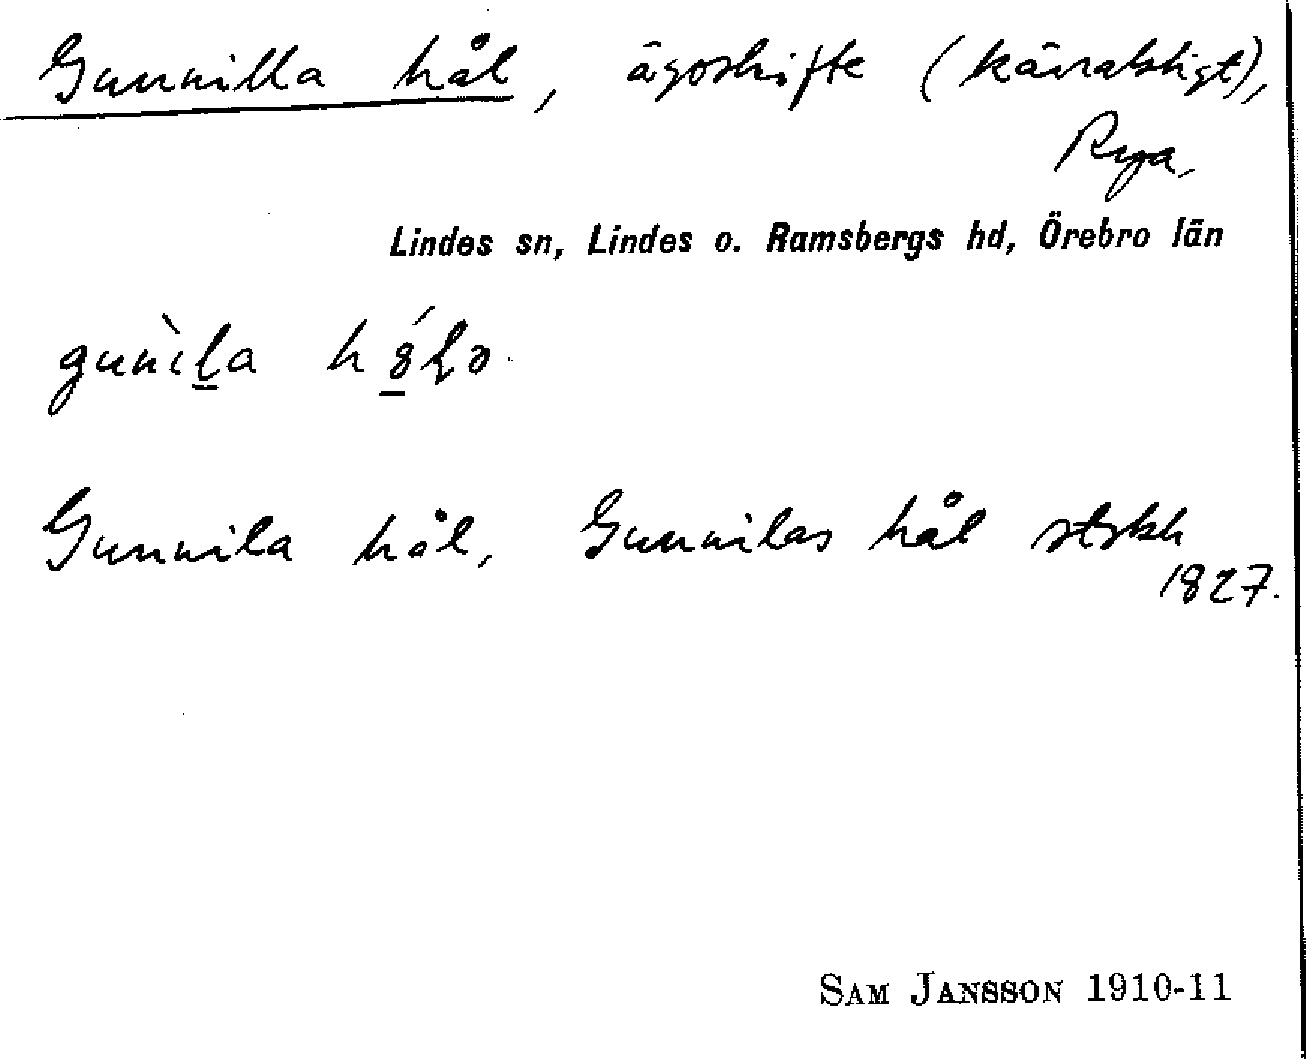 Gunnilla hål, ägoskifte (kärraktigt),
Rya,
Lindes sn, Lindes o. Ramsbergs hd, Örebro län
Gunnila hål, Gunnilas hål
1827.
SAM JANSSON 1910-11